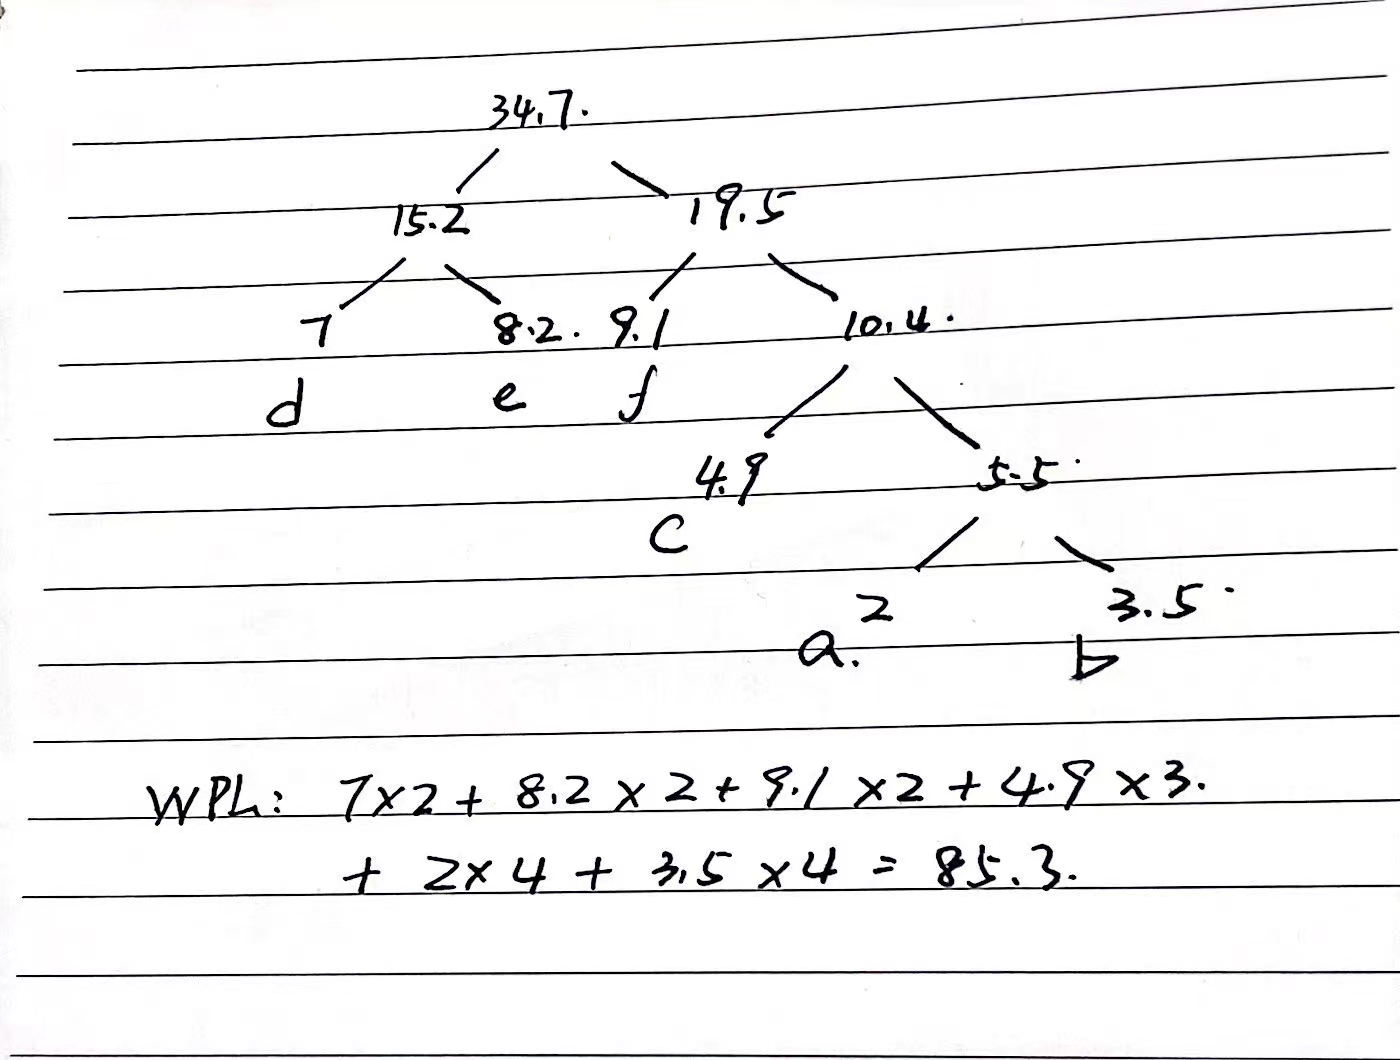 34.7.
15.2 19.5
7 8.2. 9.1 10.4.
d e f
4.9 5.5.
c
2 3.5.
a. b
WPL: 7×2 + 8.2 × 2 + 9.1 × 2 + 4.9 × 3.
+ 2×4 + 3.5 ×4 = 85.3.